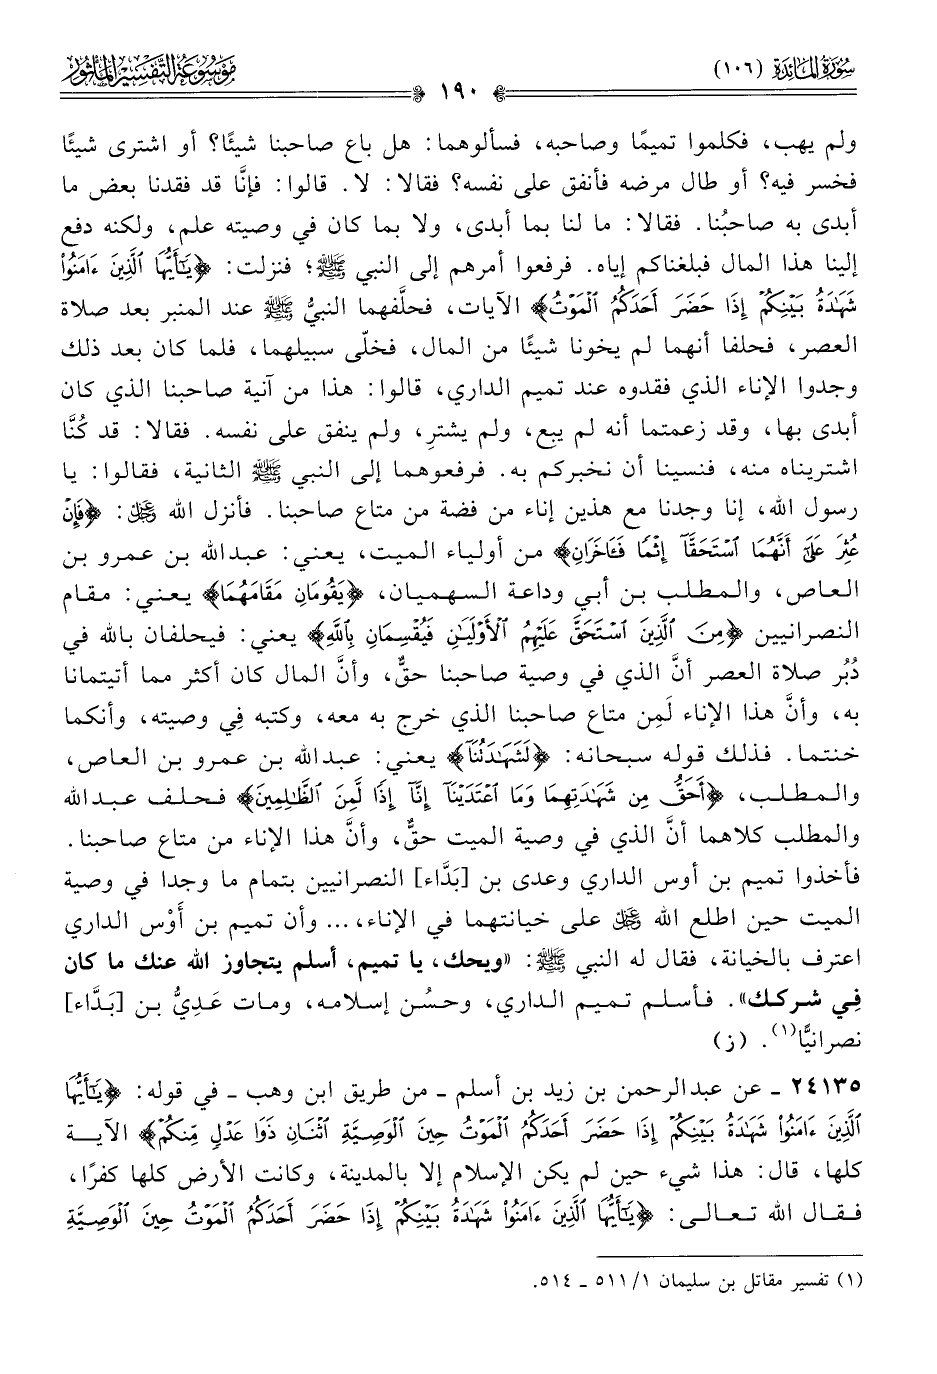 سُورَةُ المَائدَة (١٠٦)
١٩٠
مَوْسُوعَة التَّفسِير المَأثُور
ولم يهب، فكلموا تميمًا وصاحبه، فسألوهما: هل باع صاحبنا شيئًا؟ أو اشترى شيئًا
فخسر فيه؟ أو طال مرضه فأنفق على نفسه؟ فقالا: لا. قالوا: فإنَّا قد فقدنا بعض ما
أبدى به صاحبُنا. فقالا: ما لنا بما أبدى، ولا بما كان في وصيته علم، ولكنه دفع
إلينا هذا المال فبلغناكم إياه. فرفعوا أمرهم إلى النبي ﷺ؛ فنزلت: ﴿يَـٰٓأَيُّهَا ٱلَّذِينَ ءَامَنُوا۟
شَهَـٰدَةُ بَيْنِكُمْ إِذَا حَضَرَ أَحَدَكُمُ ٱلْمَوْتُ﴾ الآيات، فحلَّفهما النبيُّ ﷺ عند المنبر بعد صلاة
العصر، فحلفا أنهما لم يخونا شيئًا من المال، فخلّى سبيلهما، فلما كان بعد ذلك
وجدوا الإناء الذي فقدوه عند تميم الداري، قالوا: هذا من آنية صاحبنا الذي كان
أبدى بها، وقد زعمتما أنه لم يبع، ولم يشترِ، ولم ينفق على نفسه. فقالا: قد كُنَّا
اشتريناه منه، فنسينا أن نخبركم به. فرفعوهما إلى النبي ﷺ الثانية، فقالوا: يا
رسول الله، إنا وجدنا مع هذين إناء من فضة من متاع صاحبنا. فأنزل الله ﷿: ﴿فَإِنْ
عُثِرَ عَلَىٰٓ أَنَّهُمَا ٱسْتَحَقَّآ إِثْمًا فَـَٔاخَرَانِ﴾ من أولياء الميت، يعني: عبدالله بن عمرو بن
العاص، والمطلب بن أبي وداعة السهميان، ﴿يَقُومَانِ مَقَامَهُمَا﴾ يعني: مقام
النصرانيين ﴿مِنَ ٱلَّذِينَ ٱسْتَحَقَّ عَلَيْهِمُ ٱلْأَوْلَيَـٰنِ فَيُقْسِمَانِ بِٱللَّهِ﴾ يعني: فيحلفان بالله في
دُبُر صلاة العصر أنَّ الذي في وصية صاحبنا حقٌّ، وأنَّ المال كان أكثر مما أتيتمانا
به، وأنَّ هذا الإناء لَمِن متاع صاحبنا الذي خرج به معه، وكتبه فِي وصيته، وأنكما
خنتما. فذلك قوله سبحانه: ﴿لَشَهَـٰدَتُنَآ﴾ يعني: عبدالله بن عمرو بن العاص،
والمطلب، ﴿أَحَقُّ مِن شَهَـٰدَتِهِمَا وَمَا ٱعْتَدَيْنَآ إِنَّآ إِذًا لَّمِنَ ٱلظَّـٰلِمِينَ﴾ فحلف عبدالله
والمطلب كلاهما أنَّ الذي في وصية الميت حقٌّ، وأنَّ هذا الإناء من متاع صاحبنا.
فأخذوا تميم بن أوس الداري وعدى بن [بَدَّاء] النصرانيين بتمام ما وجدا في وصية
الميت حين اطلع الله ﷿ على خيانتهما في الإناء،... وأن تميم بن أَوْس الداري
اعترف بالخيانة، فقال له النبي ﷺ: «ويحك، يا تميم، أسلم يتجاوز الله عنك ما كان
فِي شركك». فأسلم تميم الداري، وحسُن إسلامه، ومات عَدِيُّ بن [بَدَّاء]
نصرانيًّا(١). (ز)
٢٤١٣٥ ـ عن عبدالرحمن بن زيد بن أسلم ـ من طريق ابن وهب ـ في قوله: ﴿يَـٰٓأَيُّهَا
ٱلَّذِينَ ءَامَنُوا۟ شَهَـٰدَةُ بَيْنِكُمْ إِذَا حَضَرَ أَحَدَكُمُ ٱلْمَوْتُ حِينَ ٱلْوَصِيَّةِ ٱثْنَانِ ذَوَا عَدْلٍ مِّنكُمْ﴾ الآية
كلها، قال: هذا شيء حين لم يكن الإسلام إلا بالمدينة، وكانت الأرض كلها كفرًا،
فقال الله تعالى: ﴿يَـٰٓأَيُّهَا ٱلَّذِينَ ءَامَنُوا۟ شَهَـٰدَةُ بَيْنِكُمْ إِذَا حَضَرَ أَحَدَكُمُ ٱلْمَوْتُ حِينَ ٱلْوَصِيَّةِ
(١) تفسير مقاتل بن سليمان ١/ ٥١١ ـ ٥١٤.